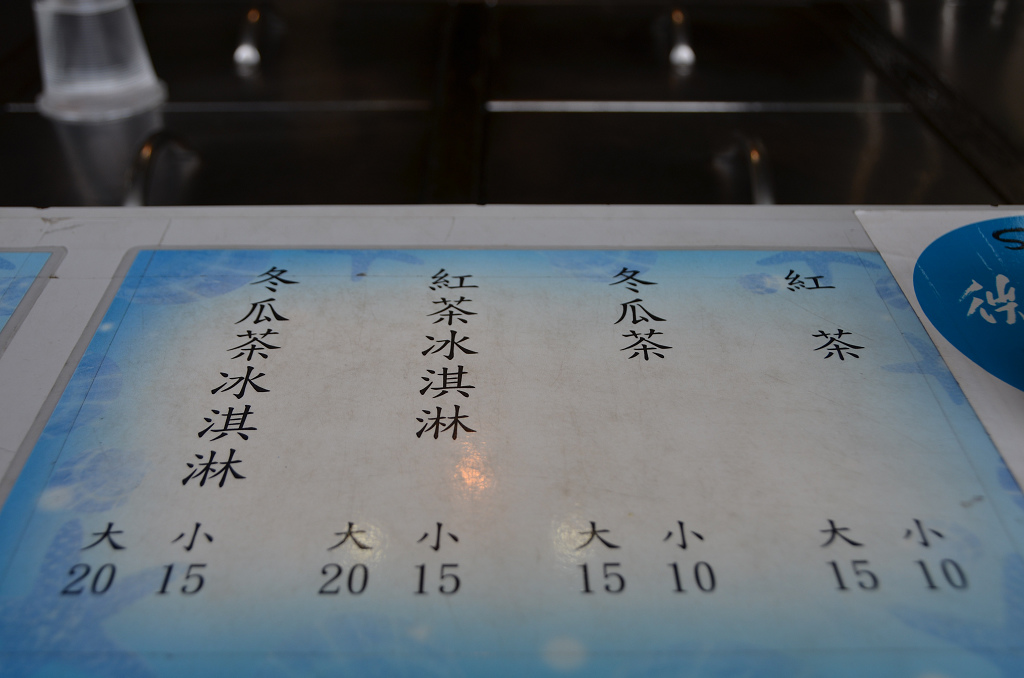 紅茶
大 小
15 10
冬瓜茶
大 小
15 10
紅茶冰淇淋
大 小
20 15
冬瓜茶冰淇淋
大 小
20 15